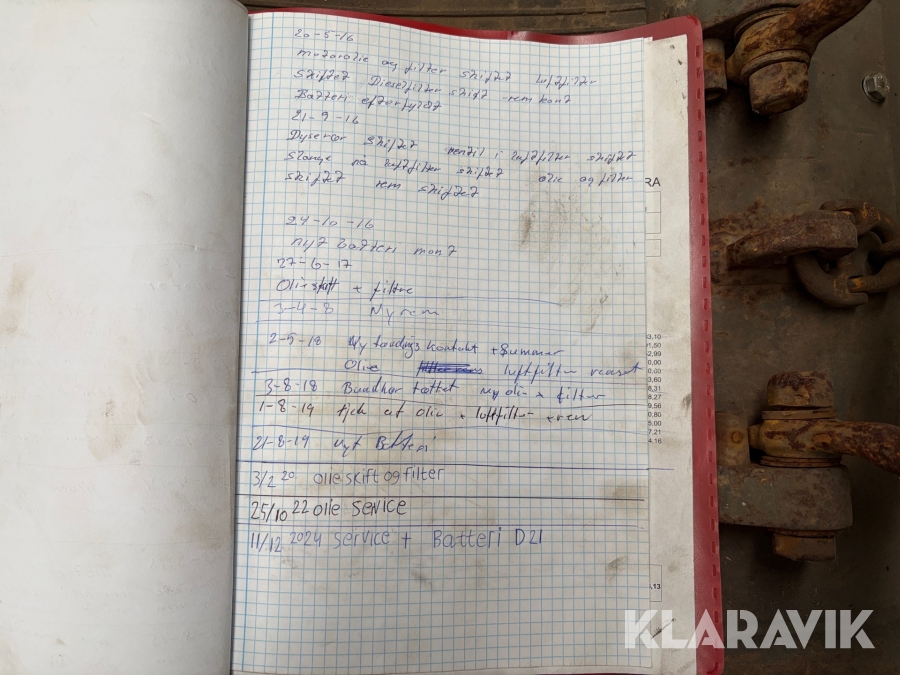 20-5-16
motorolie og filter skiftet luftfilter
skiftet Dieselfilter skift -rem kont
Batteri efterfyldt
21-9-16
Dyserør skiftet ventil i luftfilter skiftet
slange på luftfilter skiftet olie og filter
skiftet rem skiftet
24-10-16
nyt batteri mont
27-6-17
Olieskift + filtre
3-4-8 Ny rem
2-5-18 Ny tændings kontakt + Summer
Olie luftfilter renset
3-8-18 Bundkar tættet ny olie + filter
1-8-19 tjek af olie + luftfilter
21-8-19 nyt Batteri
3/2 20 olie skift og filter
25/10 22 olie service
11/12 2024 service + Batteri D21
RA
KLARAVIK